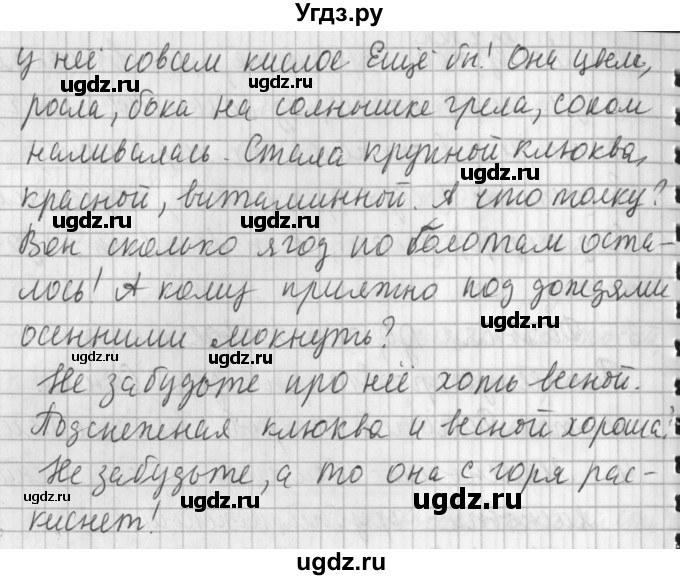 Угдз.ру
у неё совсем кислое Ещё бы! Она цвела,
росла, бока на солнышке грела, соком
наливалась. Стала крупной клюква,
красной, витаминной. А что толку?
Вон сколько ягод по болотам оста-
лось! А кому приятно под дождями
осенними мокнуть?
Не забудьте про неё хоть весной.
Подснежная клюква и весной хороша!
Не забудьте, а то она с горя рас-
киснет!
ugdz.ru